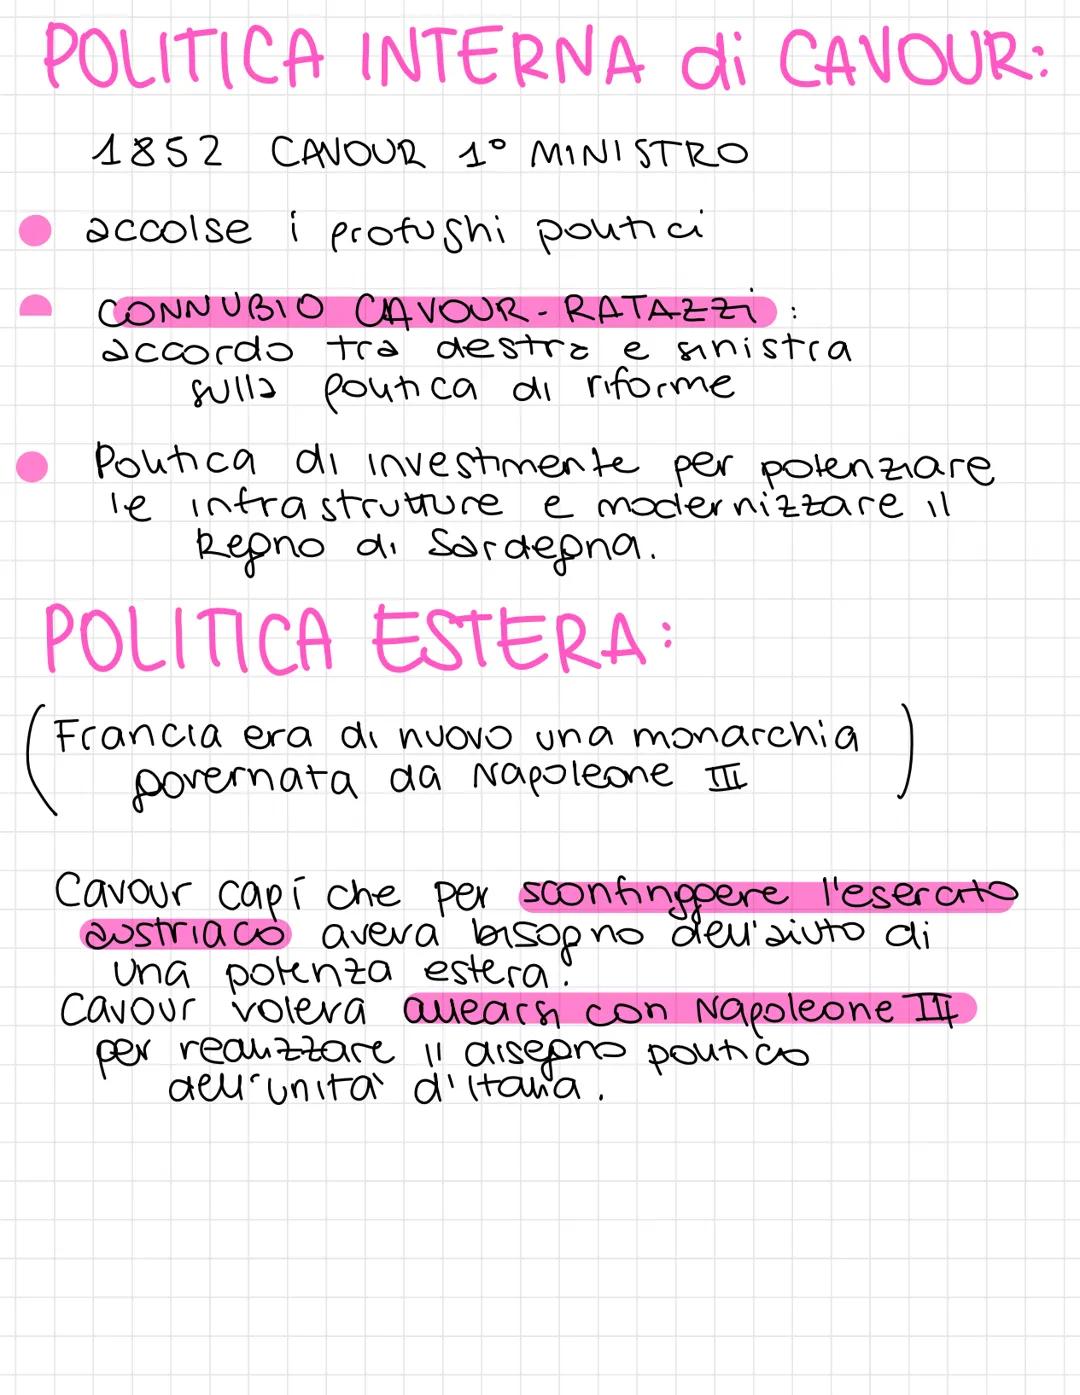 POLITICA INTERNA di CAVOUR:
1852 CAVOUR 1° MINISTRO
accolse i profughi politici
CONNUBIO CAVOUR-RATAZZI:
accordo tra destra e sinistra
sulla politica di riforme
Politica di investimente per potenziare
le infrastrutture e modernizzare il
Regno di Sardegna.
POLITICA ESTERA:
(Francia era di nuovo una monarchia
governata da Napoleone III)
Cavour capí che per sconfinggere l'esercito
austriaco aveva bisogno dell'aiuto di
una potenza estera.
Cavour voleva allearsi con Napoleone III
per realizzare il disegno politico
dell'unità d'Italia.